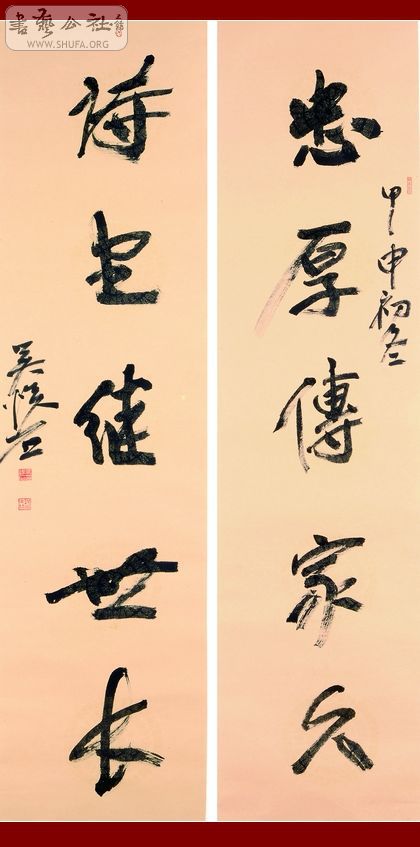 書藝公社
WWW.SHUFA.ORG
忠厚傳家久
甲申初冬
詩書繼世長